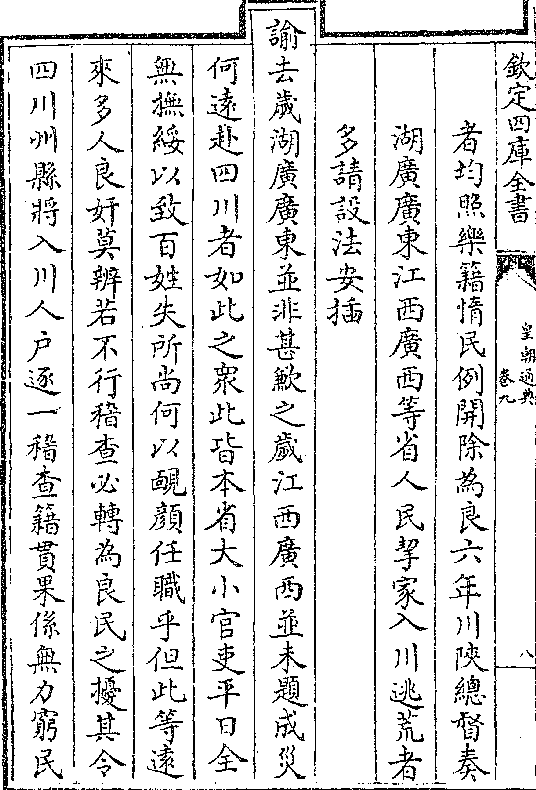 欽定四庫全書
皇朝通典
卷九
八
者均照樂籍惰民例開除為良六年川陝總督奏
湖廣廣東江西廣西等省人民挈家入川逃荒者
多請設法安插
諭去歲湖廣廣東並非甚歉之歲江西廣西並未題成災
何遠赴四川者如此之衆此皆本省大小官吏平日全
無撫綏以致百姓失所尚何以靦顔任職乎但此等遠
來多人良奸莫辨若不行稽查必轉為良民之擾其令
四川州縣將入川人户逐一稽查籍貫果係無力窮民